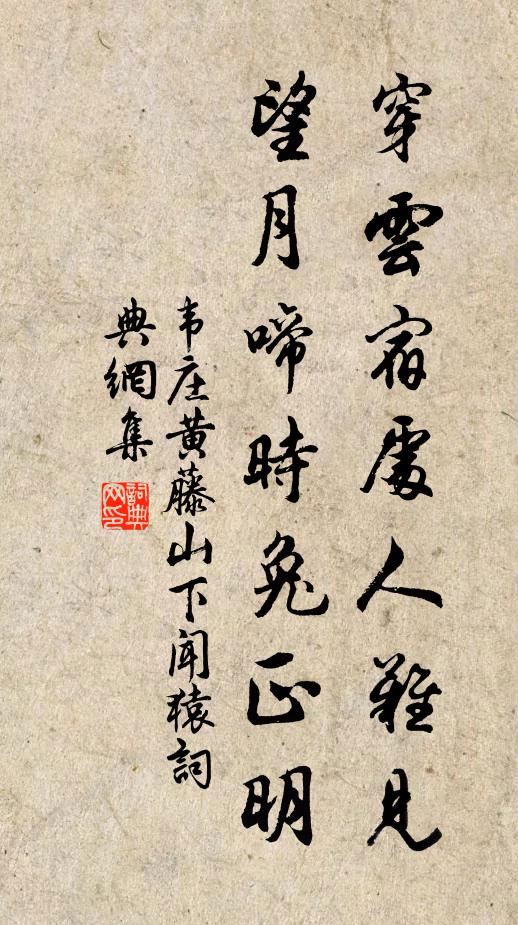 穿雲宿處人難見
望月啼時兔正明
韦庄黄藤山下闻猿詞
典網集
詞典網印